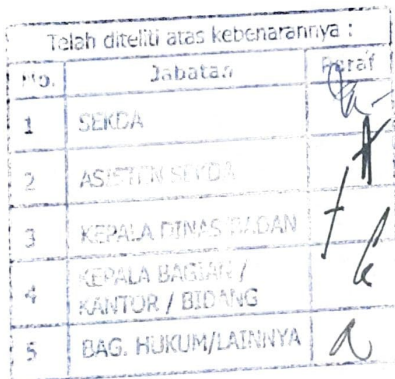 Telah diteliti atas kebenarannya :
No. Jabatan Paraf
1 SEKDA
2 ASISTEN SEKDA
3 KEPALA DINAS BADAN
4 KEPALA BAGIAN /
KANTOR / BIDANG
5 BAG. HUKUM/LAINNYA